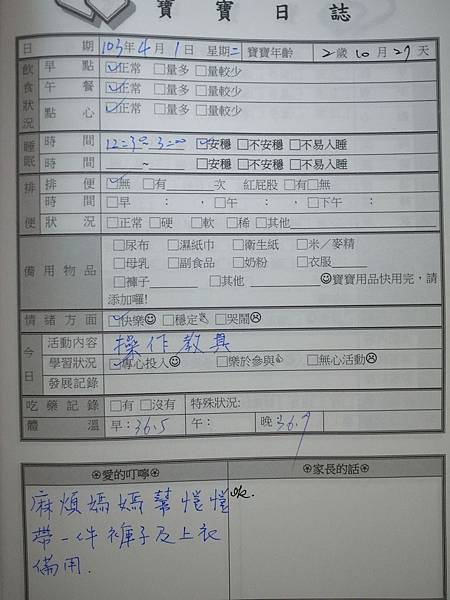 寶寶日誌
日期 103年4月1日 星期二 寶寶年齡 2歲10月27天
飲食狀況 早點 ☑正常 □量多 □量較少
午餐 ☑正常 □量多 □量較少
點心 ☑正常 □量多 □量較少
睡眠 時間 12:30~3:00 ☑安穩 □不安穩 □不易入睡
時間 ~ □安穩 □不安穩 □不易入睡
排便 排便 ☑無 □有 次 紅屁股 □有□無
時間 □早 : , □午 : , □下午 :
狀況 □正常 □硬 □軟 □稀 □其他
備用物品 □尿布 □濕紙巾 □衛生紙 □米／麥精
□母乳 □副食品 □奶粉 □衣服
□褲子 □其他 ☺寶寶用品快用完，請
添加囉!
情緒方面 ☑快樂☺ □穩定 □哭鬧☹
今日 活動內容 操作教具
學習狀況 ☑專心投入☺ □樂於參與 □無心活動☹
發展記錄
吃藥記錄 □有 □沒有 特殊狀況:
體溫 早:36.5 午: 晚36.7
愛的叮嚀
麻煩媽媽幫愷愷
帶一件褲子及上衣
備用.
家長的話
ok.